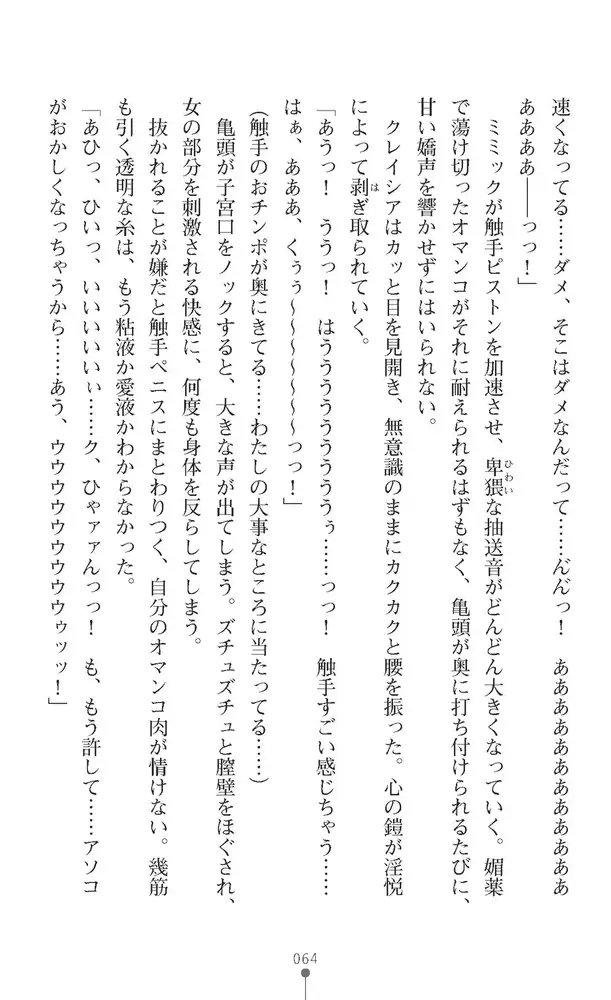 速くなってる……ダメ、そこはダメなんだって……ん゛ん゛っ！　あああああああああああああ
ああああ――っっ！」
　ミミックが触手ピストンを加速させ、卑猥な抽送音がどんどん大きくなっていく。媚薬
で蕩け切ったオマンコがそれに耐えられるはずもなく、亀頭が奥に打ち付けられるたびに、
甘い嬌声を響かせずにはいられない。
　クレイシアはカッと目を見開き、無意識のままにカクカクと腰を振った。心の鎧が淫悦
によって剥ぎ取られていく。
「あうっ！　ううっ！　はうううううううううぅ……っっ！　触手すごい感じちゃう……
はぁ、あああ、くぅぅ～～～～～～～っっ！」
（触手のおチンポが奥にきてる……わたしの大事なところに当たってる……）
　亀頭が子宮口をノックすると、大きな声が出てしまう。ズチュズチュと膣壁をほぐされ、
女の部分を刺激される快感に、何度も身体を反らしてしまう。
　抜かれることが嫌だと触手ペニスにまとわりつく、自分のオマンコ肉が情けない。幾筋
も引く透明な糸は、もう粘液か愛液かわからなかった。
「あひっ、ひいっ、いいいいいぃ……ク、ひゃァァんっっ！　も、もう許して……アソコ
がおかしくなっちゃうから……あう、ウウウウウウウウウウゥッッ！」
064